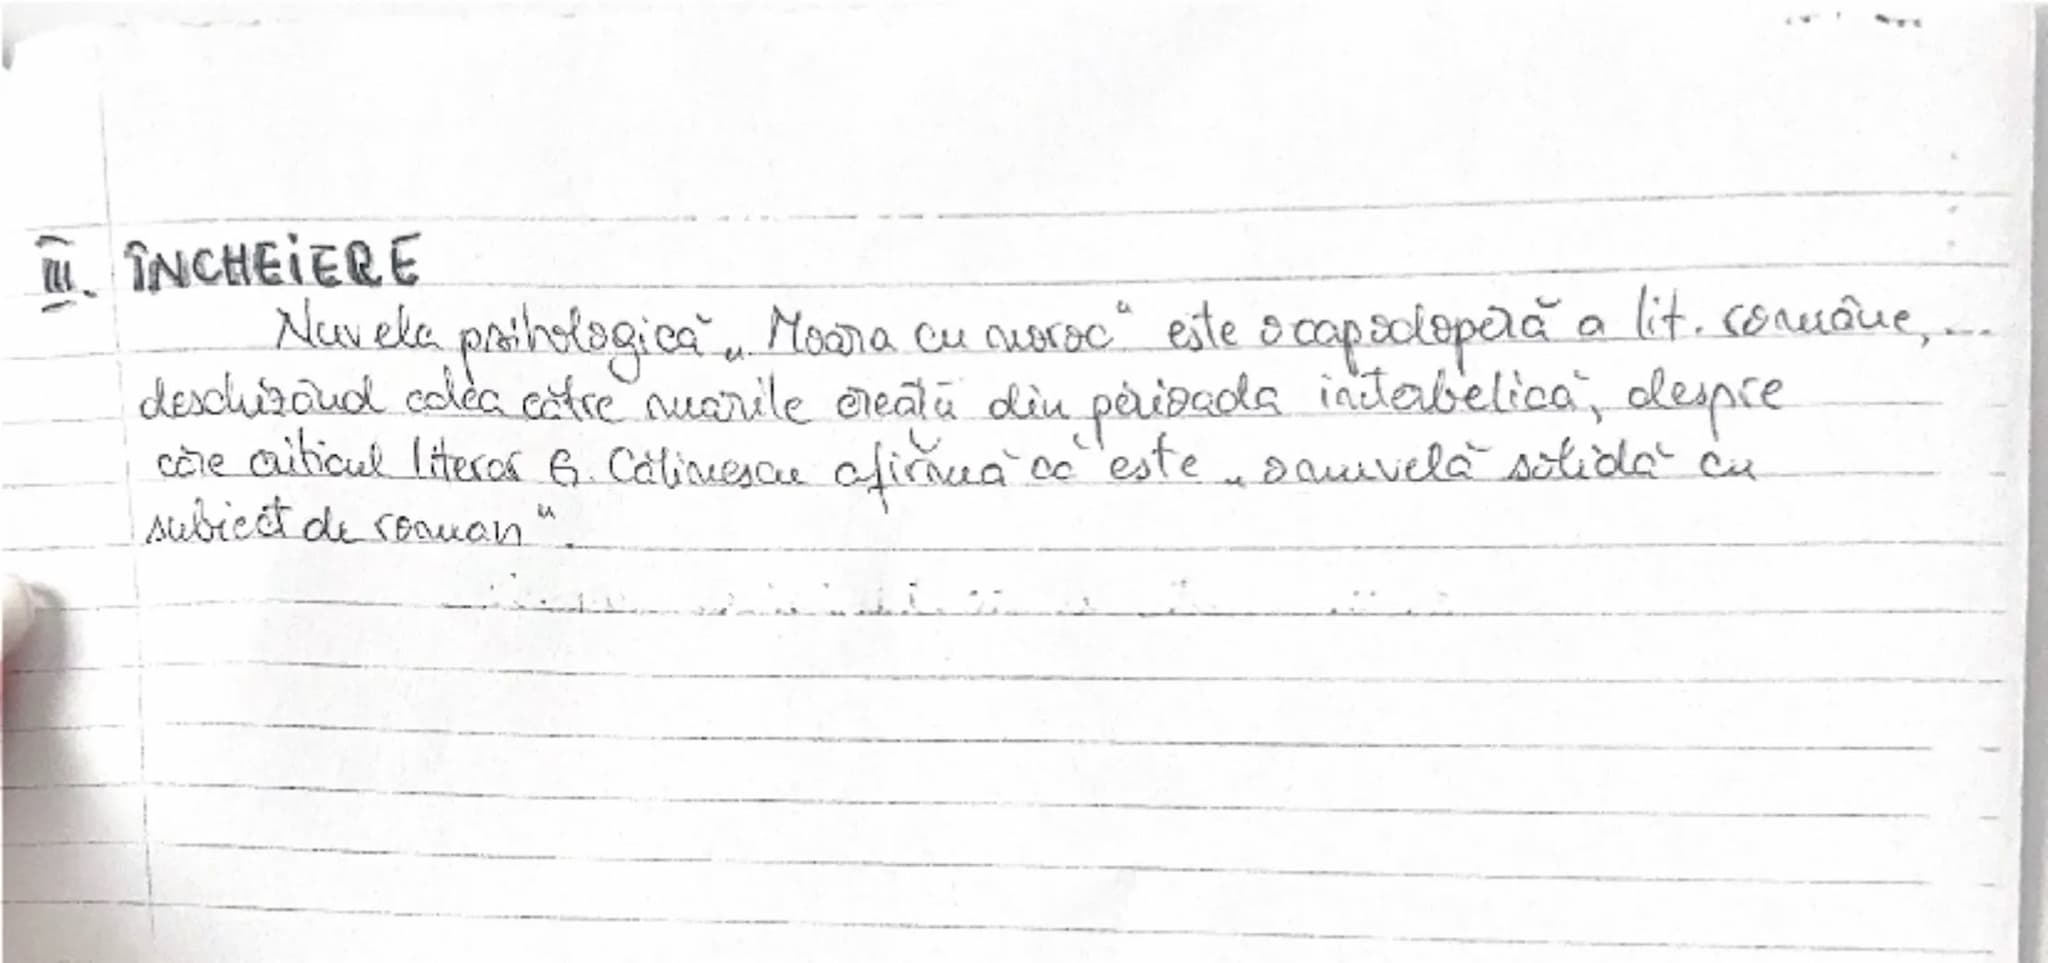 III. ÎNCHEIERE
Nuvela psihologică „Moara cu noroc“ este o capodoperă a lit. române, ...
deschizând calea către marile creații din perioada interbelică, despre
care criticul literar G. Călinescu afirmă că este „o nuvelă solidă cu
subiect de roman“.